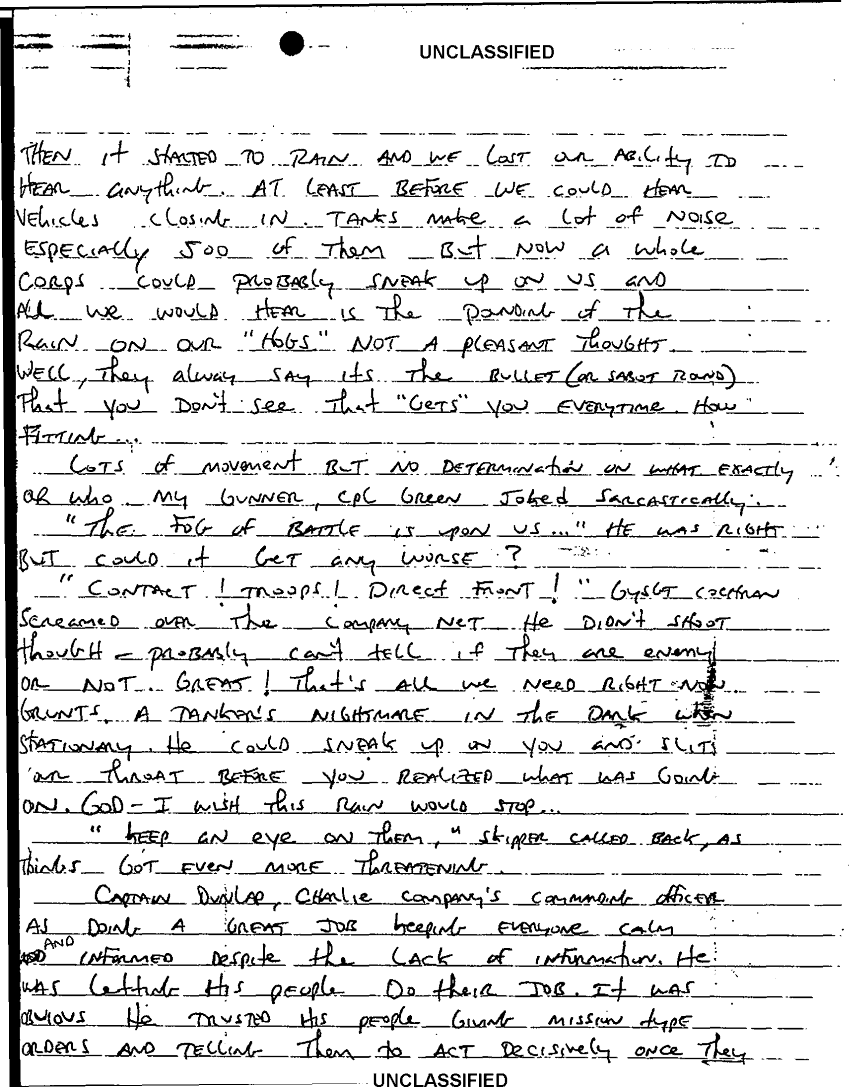 UNCLASSIFIED
THEN it STARTED TO RAIN AND WE Lost our Ability TO
HEAR anything. AT LEAST BEFORE WE COULD HEAR
Vehicles closing IN. TANKS make a lot of NOISE
ESPECIALLY 500 of Them But NOW a whole
CORPS COULD PROBABLY SNEAK up ON US AND
All we WOULD HEAR is The pounding of The
RAIN ON OUR "HOGS" NOT A PLEASANT Thought.
WELL, They alway SAY its The BULLET (OR SABOT ROUND)
That you DON'T See That "GETS" YOU EVERYTIME. How
FITTING...
LOTS of movement BUT NO DETERMINATION ON WHAT EXACTLY
OR who. My GUNNER, CPL GREEN Joked SARCASTICALLY.
"THE FOG OF BATTLE is upon US..." HE WAS RIGHT
BUT COULD it GET any WORSE ?
"CONTACT! TROOPS! Direct FRONT!" GYSGT COCHRAN
SCREAMED over The COMPANY NET. He DIDN'T SHOOT
though - PROBABLY can't tell if They are enemy
OR NOT. GREAT! That's All we NEED RIGHT NOW
GRUNTS. A TANKER'S NIGHTMARE IN the DARK WHEN
STATIONARY. He COULD SNEAK up ON YOU AND SLITS
our THROAT BEFORE YOU REALIZED WHAT WAS GOING
ON. GOD - I WISH this RAIN WOULD STOP...
"KEEP AN eye ON Them," SKIPPER CALLED BACK, AS
Things GOT EVEN MORE THREATENING.
CAPTAIN DUNLAP, CHARLIE COMPANY'S commanding officer
AS DOING A GREAT JOB keeping EVERYONE calm
AND INFORMED Despite the LACK of information. He
WAS letting His people Do their JOB. It WAS
OBVIOUS He TRUSTED HIS people GIVING MISSION type
ORDERS AND TELLING Them to ACT Decisively once They
UNCLASSIFIED